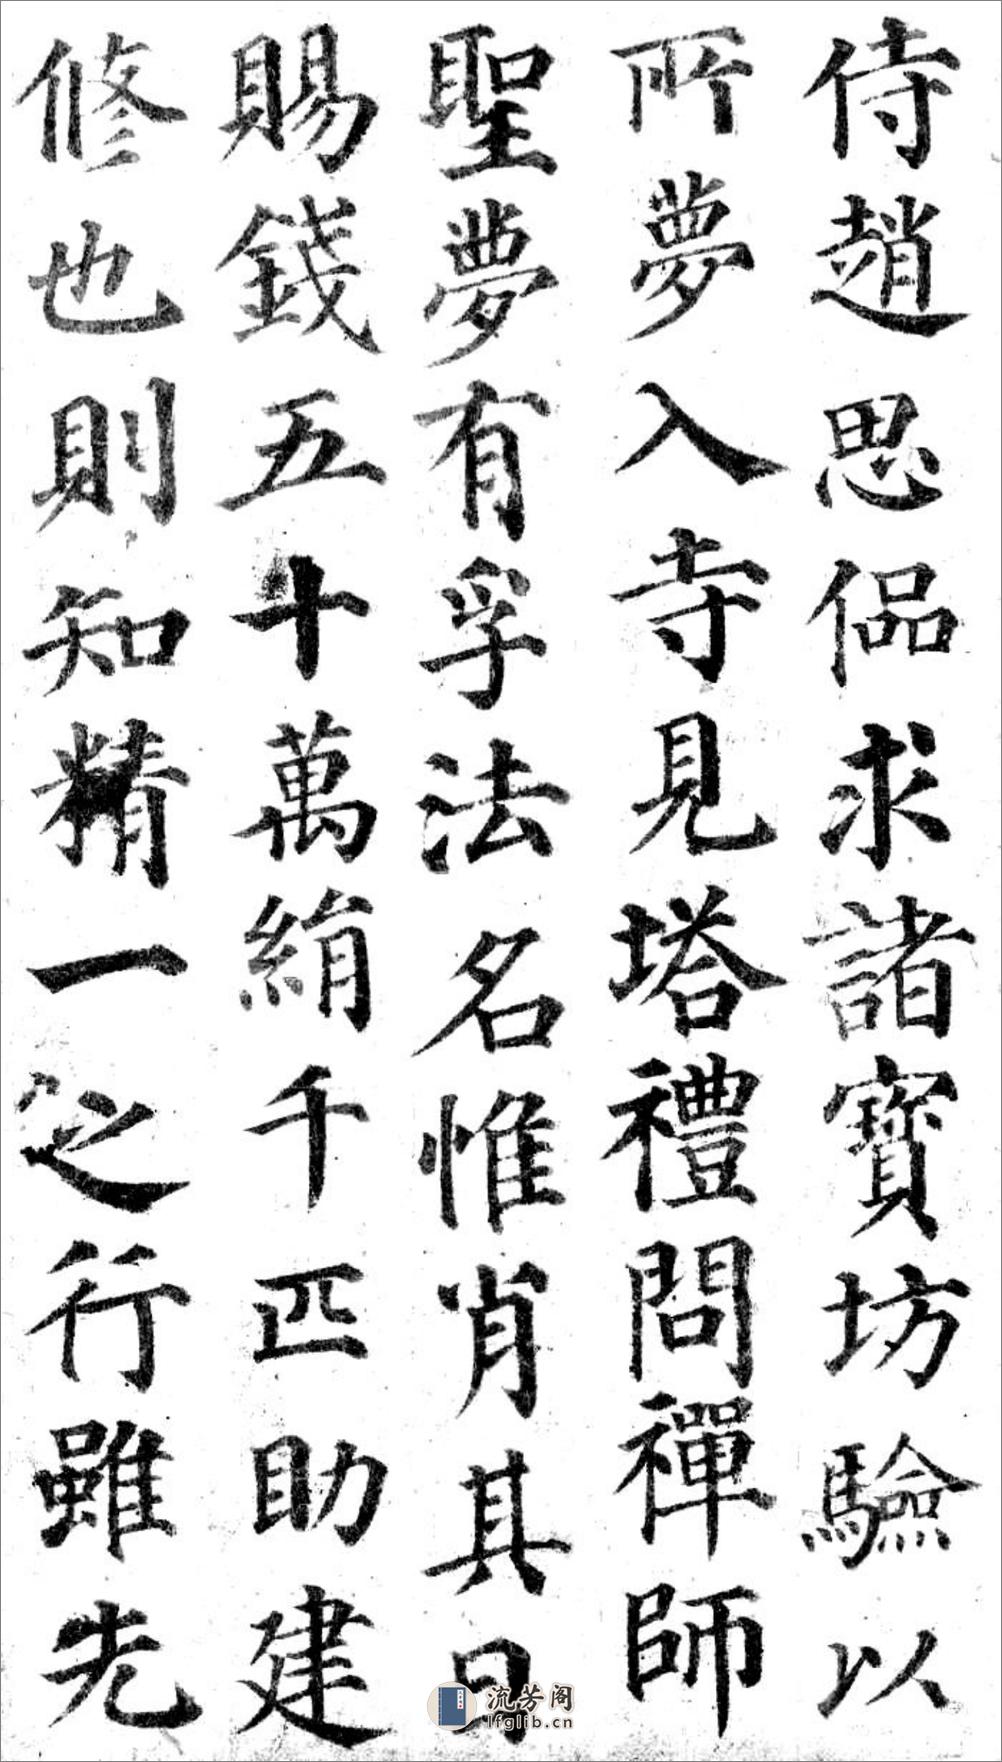 侍趙思侽求諸寶坊驗以
所夢入寺見塔禮問禪師
聖夢有孚法名惟肖其日
賜錢五十萬絹千匹助建
修也則知精一之行雖先
流芳阁
lfglib.cn